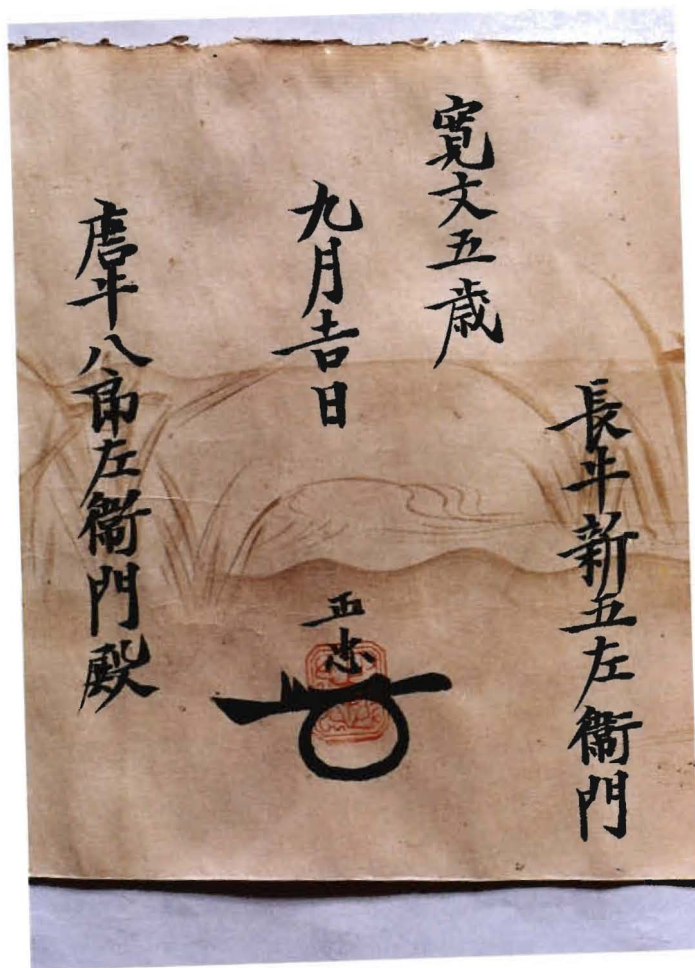 長牛新五左衛門
寛文五歳
九月吉日
正忠
唐牛八郎左衛門殿